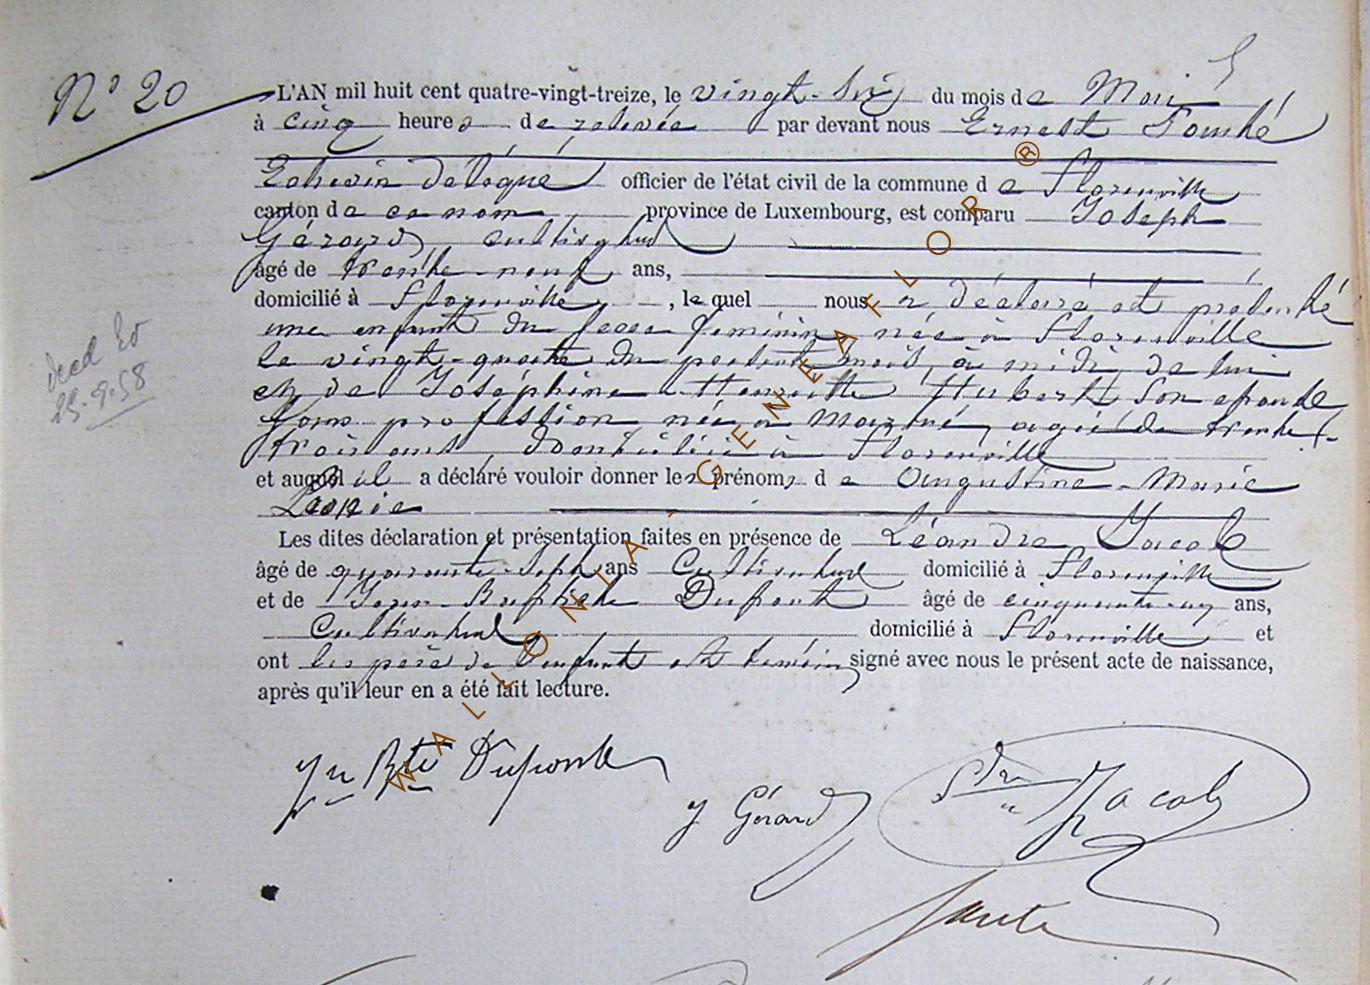 N° 20
L'AN mil huit cent quatre-vingt-treize, le vingt-six du mois de Mai
à cinq heures de relevée par devant nous Ernest
Echevin délégué officier de l'état civil de la commune de Florenville
canton de ce nom province de Luxembourg, est comparu Joseph
Gérard, cultivateur
âgé de trente-neuf ans,
domicilié à Florenville, lequel nous a déclaré et présenté
une enfant du sexe féminin, née à Florenville
le vingt-quatre du présent mois, à midi, de lui
et de Joséphine Henriette Hubert, son épouse
sans profession née à agée de trente-
trois ans, domiciliée à Florenville
et auquel il a déclaré vouloir donner les prénoms de Augustine-Marie
Léonie
Les dites déclaration et présentation faites en présence de Léandre Jacob
âgé de quarante-sept ans Cultivateur domicilié à Florenville
et de Jean-Baptiste Dupont âgé de cinquante-un ans,
Cultivateur domicilié à Florenville et
ont les père de l'enfant et témoins signé avec nous le présent acte de naissance,
après qu'il leur en a été fait lecture.
25-9-58
Jn Bte Dupont
J Gérard
Jacob
WALLONIA - GENEAFLOR ®